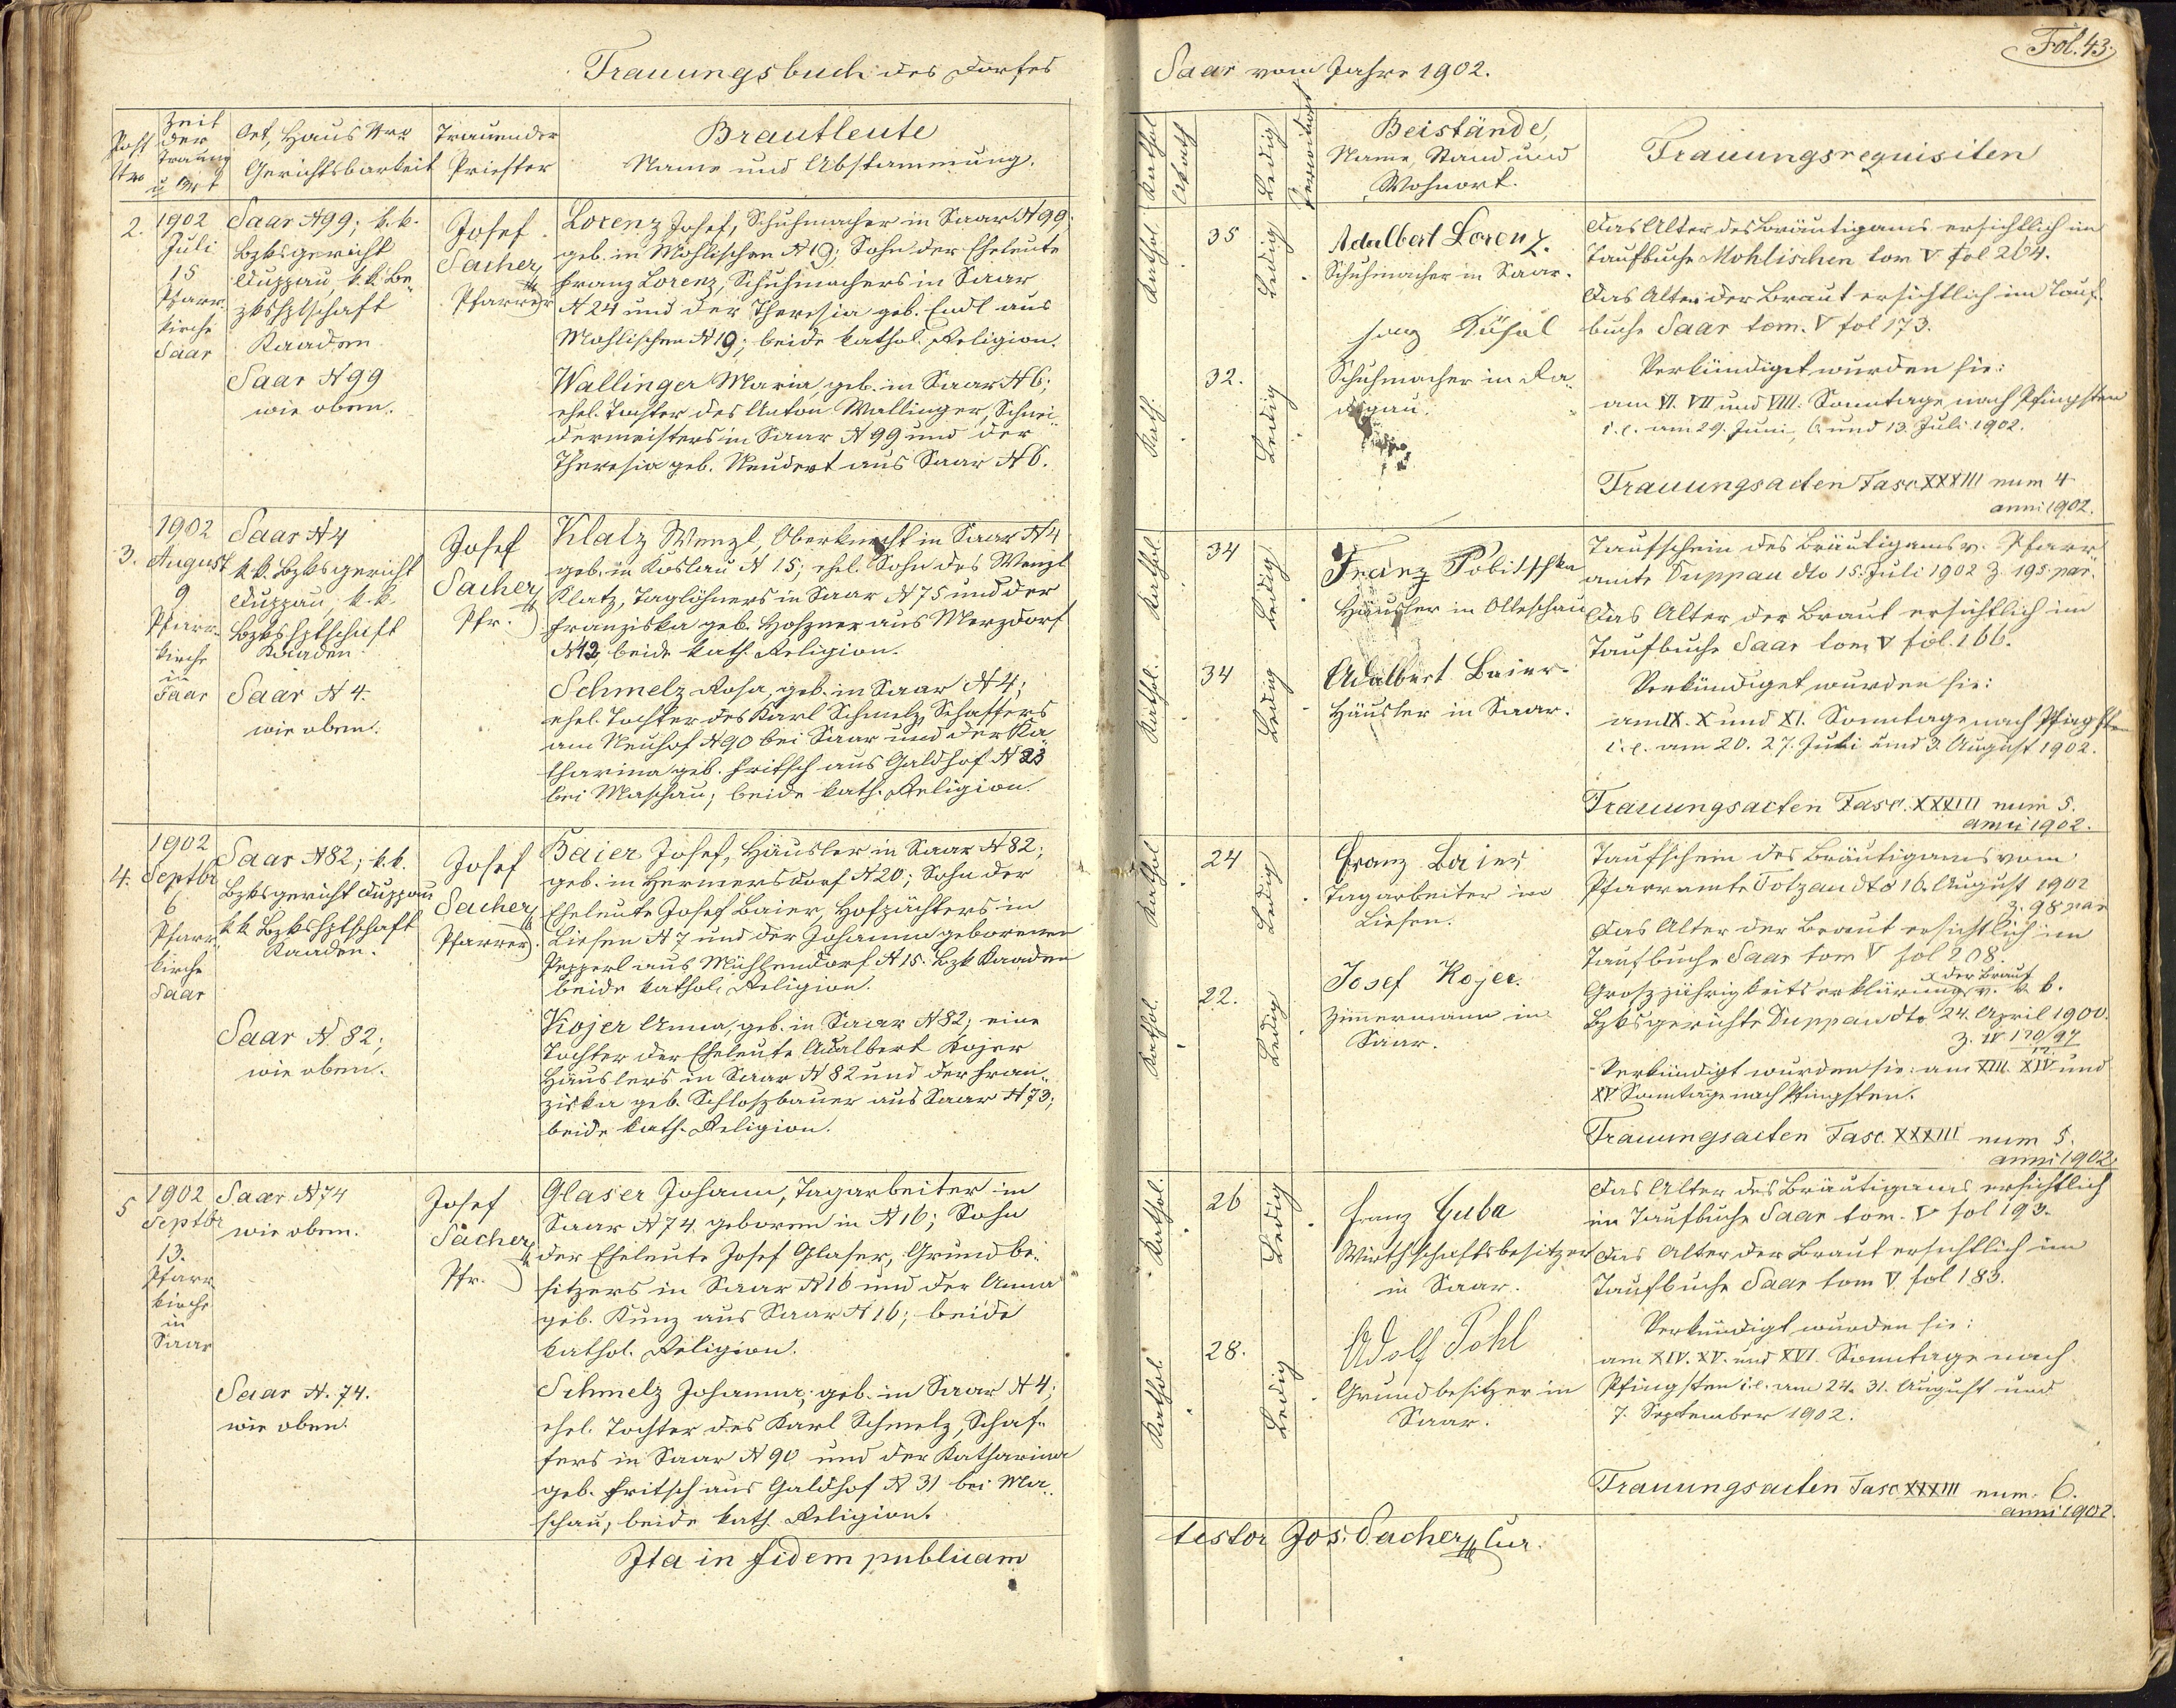 Trauungsbuch des Dorfes
Post Nro
Zeit der Trauung u Ort
Ort, Haus Nro
Gerichtsbarkeit
Trauender
Priester
Brautleute
Name und Abstammung.
2.
1902
Juli
15
Pfarr-
kirche
Saar
Saar N 99; k.k.
Bzksgericht
Duppau k.k. Be-
zkshptschaft
Kaaden
Saar N 99
wie oben.
Josef
Sacher
Pfarrer
Lorenz Josef, Schuhmacher in Saar N 99;
geb. in Mohlischen N 19; Sohn der Eheleute
Franz Lorenz, Schuhmachers in Saar
N 24 und der Theresia geb. Endl aus
Mohlischen N 19; beide kathol. Religion.
Wallinger Maria, geb. in Saar N 6;
ehel. Tochter des Anton Wallinger, Schnei-
dermeisters in Saar N 99 und der
Theresia geb. Neudert aus Saar N 6.
3.
1902
August
9
Pfarr-
kirche
in
Saar
Saar N 4
k.k. Bzksgericht
Duppau, k.k.
Bzkshptschaft
Kaaden
Saar N 4.
wie oben.
Josef
Sacher
Pfr.
Klatz Wenzl, Oberknecht in Saar N 4
geb. in Koslau N 15; ehel. Sohn des Wenzl
Klatz, Taglöhners in Saar N 75 und der
Franziska geb. aus Merzdorf
N 12, beide kath. Religion.
Schmelz Rosa, geb. in Saar N 4;
ehel. Tochter des Karl Schmelz, Schaffers
am Neuhof N 90 bei Saar und der Ka-
tharina geb. Fritsch aus Galdhof N
bei Maschau; beide kath. Religion.
4.
1902
Septbr
6
Pfarr-
kirche
Saar
Saar N 82; k.k.
Bzksgericht Duppau
k.k. Bzkshptschaft
Kaaden.
Saar N. 82;
wie oben.
Josef
Sacher
Pfarrer.
Baier Josef, Häusler in Saar N 82;
geb. in Hermersdorf N 20; Sohn der
Eheleute Josef Baier, Hofpächters in
Liesen N 7 und der Johanna geborenen
Pepperl aus Mühlendorf N 15. Bzk Kaaden
beide kathol. Religion.
Kojer Anna, geb. in Saar N 82; eine
Tochter der Eheleute Adalbert Kojer
Häuslers in Saar N 82 und der Fran-
ziska geb. Schloszbauer aus Saar N 73;
beide kath. Religion.
5
1902
Septbr
13.
Pfarr
kirche
in
Saar
Saar N 74
wie oben.
Saar N. 74.
wie oben.
Josef
Sacher
Pfr.
Glaser Johann, Tagarbeiter in
Saar N 74 geboren in N 16; Sohn
der Eheleute Josef Glaser, Grundbe-
sitzers in Saar N 16 und der Anna
geb. Kunz aus Saar N 16; beide
kathol. Religion.
Schmelz Johanna, geb. in Saar N 4;
ehel. Tochter des Karl Schmelz, Schaf-
fers in Saar N 90 und der Katharina
geb. Fritsch aus Galdhof N 31 bei Ma-
schau; beide kath. Religion.
Ita in fidem publicam
Fol. 43.
Saar vom Jahre 1902.
Kathol
Akath
Ledig
Verwitwet
Beistände,
Name, Stand und
Wohnort.
Trauungsrequisiten
Kathol.
35
Ledig
Adalbert Lorenz.
Schuhmacher in Saar.
Kath.
32.
Ledig
Schuhmacher in
Das Alter des Bräutigams ersichtlich im
Taufbuche Mohlischen tom V fol 204.
Das Alter der Braut ersichtlich im Tauf-
buche Saar tom. V fol 173.
Verkündiget wurden sie:
am VI. VII und VIII. Sonntage nach Pfingsten
i.e. am 29. Juni, 6. und 13. Juli 1902.
Trauungsacten Fasc XXXIII num 4
anni 1902.
Kathol.
34
Ledig
Franz Pobitschka
Häusler in Olleschau
Kathol.
34
Ledig
Adalbert Baier.
Häusler in Saar.
Taufschein des Bräutigams v. Pfarr-
amte Duppau dto 15. Juli 1902 Z. 195 par.
Das Alter der Braut ersichtlich im
Taufbuche Saar tom V fol. 166.
Verkündiget wurden sie:
am IX. X und XI. Sonntage nach Pfingsten
i.e. am 20. 27. Juli und 3. August 1902.
Trauungsacten Fasc. XXXIII num 5.
anni 1902.
Kathol
24
Ledig
Franz Baier
Tagarbeiter in
Liesen.
Kathol.
22.
Ledig
Josef Kojer.
Zimermann in
Saar.
Taufschein des Bräutigams vom
Pfarramte Totzau dto 16. August 1902
Z. 98 par
Das Alter der Braut ersichtlich im
Taufbuche Saar tom V fol 208.
x der Braut
Groszjährigkeitserklärung x v. k.k.
Bzksgerichte Duppau dto 24. April 1900.
Z. IV 170/97
Verkündigt wurden sie: am XIII. XIV und
XV Sonntage nach Pfingsten.
Trauungsacten Fasc. XXXIII num 5.
anni 1902.
Kathol.
26
Ledig
Franz Guba
Wirthschaftsbesitzer
in Saar.
Kathol.
28.
Ledig
Adolf Pohl
Grundbesitzer in
Saar.
Das Alter des Bräutigams ersichtlich
im Taufbuche Saar tom. V fol 193.
Das Alter der Braut ersichtlich im
Taufbuche Saar tom V fol 183.
Verkündigt wurden sie:
am XIV. XV. und XVI. Sonntage nach
Pfingsten i.e. am 24. 31. August und
7. September 1902.
Trauungsacten Fasc XXXIII num. 6.
anni 1902.
testor Jos. Sacher Cur.